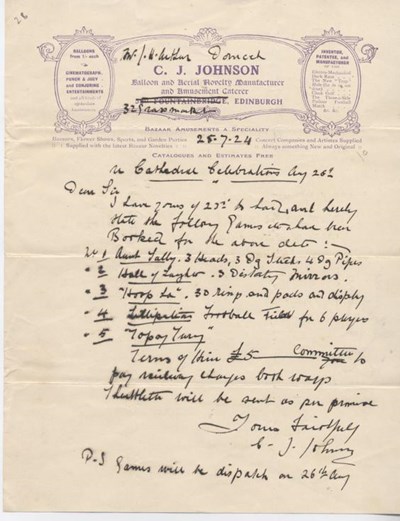 28
Mr J. H. Arthur Dornoch
BALLOONS
CINEMATOGRAPH,
PUNCH & JUDY
and CONJURING
ENTERTAINMENTS
INVENTOR,
PATENTEE, AND
MANUFACTURER
C. J. JOHNSON
Balloon and Aerial Novelty Manufacturer
and Amusement Caterer
FOUNTAINBRIDGE, EDINBURGH
32 Grassmarket
BAZAAR AMUSEMENTS A SPECIALITY
25-7-24
Bazaars, Flower Shows, Sports, and Garden Parties
Supplied with the latest Bazaar Novelties
Concert Companies and Artistes Supplied
Always something New and Original
CATALOGUES AND ESTIMATES FREE
re Cathedral Celebrations Aug 26th
Dear Sir
I have yours of 23rd to hand, and hereby
State the following Games we have been
Booked for the above date :-
No 1 Aunt Sally. 3 Heads, 3 Dz Sticks 4 Dz Pipes
" 2 Hall of Laughter. 3 Distorting Mirrors.
" 3 "Hoop La". 30 rings and pads and display
" 4 Lilliputian Football Field for 6 players
" 5 "Topsy Turvy"
Terms of Hire £5 Committee to
pay railway charges both ways
will be sent as per promise
Yours Faithfully
C. J. Johnson
P.S Games will be dispatch on 26th Aug